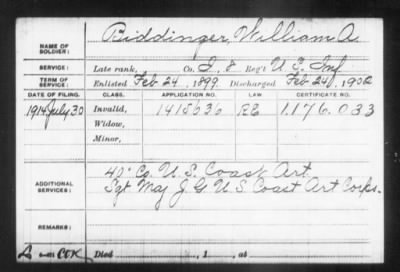 NAME OF SOLDIER: Biddinger, William A.
SERVICE: Late rank, Co. I, 8 Reg't U. S. Inf.
TERM OF SERVICE: Enlisted Feb 24, 1899 Discharged Feb 24, 1902
DATE OF FILING. CLASS. APPLICATION NO. LAW CERTIFICATE NO.
1914 July 30 Invalid, 1415636 1.176.033
Widow,
Minor,
ADDITIONAL SERVICES: 40" Co. U. S. Coast Art.
Sgt Maj J. G. U S Coast Art Corps.
REMARKS:
Died , 1 , at